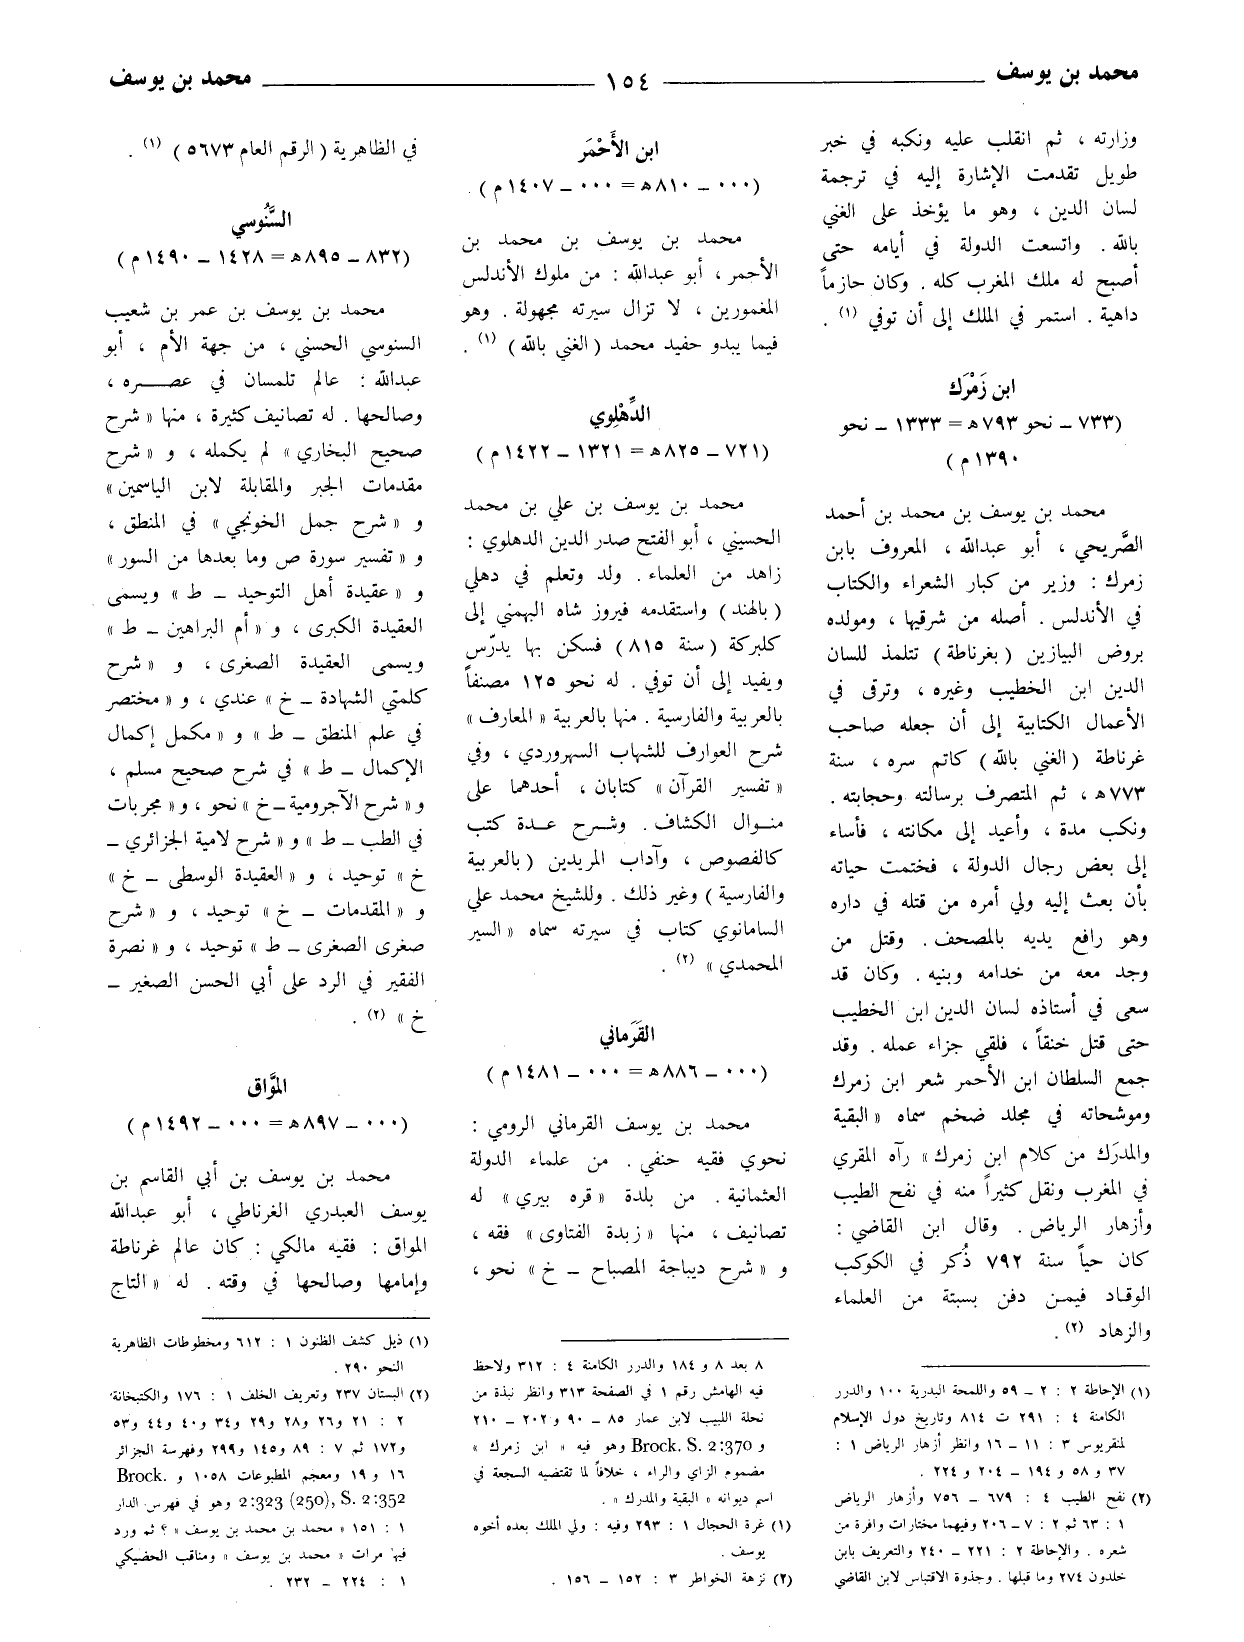 محمد بن يوسف ١٥٤ محمد بن يوسف
وزارته ، ثم انقلب عليه ونكبه في خبر
طويل تقدمت الإشارة إليه في ترجمة
لسان الدين ، وهو ما يؤخذ على الغني
بالله . واتسعت الدولة في أيامه حتى
أصبح له ملك المغرب كله . وكان حازماً
داهية . استمر في الملك إلى أن توفي (١) .
ابن زَمْرَك
(٧٣٣ ــ نحو ٧٩٣ هـ = ١٣٣٣ ــ نحو
١٣٩٠ م)
محمد بن يوسف بن محمد بن أحمد
الصَّريحي ، أبو عبدالله ، المعروف بابن
زمرك : وزير من كبار الشعراء والكتاب
في الأندلس . أصله من شرقيها ، ومولده
بروض البيازين ( بغرناطة ) تتلمذ للسان
الدين ابن الخطيب وغيره ، وترقى في
الأعمال الكتابية إلى أن جعله صاحب
غرناطة (الغني بالله) كاتم سره ، سنة
٧٧٣ هـ ، ثم المتصرف برسالته وحجابته .
ونكب مدة ، وأعيد إلى مكانته ، فأساء
إلى بعض رجال الدولة ، فختمت حياته
بأن بعث إليه ولي أمره من قتله في داره
وهو رافع يديه بالمصحف . وقتل من
وجد معه من خدامه وبنيه . وكان قد
سعى في أستاذه لسان الدين ابن الخطيب
حتى قتل خنقاً ، فلقي جزاء عمله . وقد
جمع السلطان ابن الأحمر شعر ابن زمرك
وموشحاته في مجلد ضخم سماه « البقية
والمدرَك من كلام ابن زمرك » رآه المقري
في المغرب ونقل كثيراً منه في نفح الطيب
وأزهار الرياض . وقال ابن القاضي :
كان حياً سنة ٧٩٢ ذُكر في الكوكب
الوقاد فيمن دفن بسبتة من العلماء
والزهاد (٢) .
(١) الإحاطة ٢ : ٢ ــ ٥٩ واللمحة البدرية ١٠٠ والدرر
الكامنة ٤ : ٢٩١ ت ٨١٤ وتاريخ دول الإسلام
لمنقريوس ٣ : ١١ ــ ١٦ وانظر أزهار الرياض ١ :
٣٧ و ٥٨ و ١٩٤ ــ ٢٠٤ و ٢٢٤ .
(٢) نفح الطيب ٤ : ٦٧٩ ــ ٧٥٦ وأزهار الرياض
١ : ٦٣ ثم ٢ : ٧ ــ ٢٠٦ وفيهما مختارات وافرة من
شعره . والإحاطة ٢ : ٢٢١ ــ ٢٤٠ والتعريف بابن
خلدون ٢٧٤ وما قبلها . وجذوة الاقتباس لابن القاضي
ابن الأَحْمَر
(٠٠٠ ــ ٨١٠ هـ = ٠٠٠ ــ ١٤٠٧ م) .
محمد بن يوسف بن محمد بن
الأحمر ، أبو عبدالله : من ملوك الأندلس
المغمورين ، لا تزال سيرته مجهولة . وهو
فيما يبدو حفيد محمد (الغني بالله) (١) .
الدِّهْلِوي
(٧٢١ ــ ٨٢٥ هـ = ١٣٢١ ــ ١٤٢٢ م)
محمد بن يوسف بن علي بن محمد
الحسيني ، أبو الفتح صدر الدين الدهلوي :
زاهد من العلماء . ولد وتعلم في دهلي
( بالهند ) واستقدمه فيروز شاه البهمني إلى
كلبركة ( سنة ٨١٥ ) فسكن بها يدرّس
ويفيد إلى أن توفي . له نحو ١٢٥ مصنفاً
بالعربية والفارسية . منها بالعربية « المعارف »
شرح العوارف للشهاب السهروردي ، وفي
« تفسير القرآن » كتابان ، أحدهما على
منـوال الكشاف . وشـرح عـدة كتب
كالفصوص ، وآداب المريدين ( بالعربية
والفارسية ) وغير ذلك . وللشيخ محمد علي
السامانوي كتاب في سيرته سماه « السير
المحمدي » (٢) .
القَرَماني
(٠٠٠ ــ ٨٨٦ هـ = ٠٠٠ ــ ١٤٨١ م)
محمد بن يوسف القرماني الرومي :
نحوي فقيه حنفي . من علماء الدولة
العثمانية . من بلدة « قره بيري » له
تصانيف ، منها « زبدة الفتاوى » فقه ،
و « شرح ديباجة المصباح ــ خ » نحو ،
٨ بعد ٨ و ١٨٤ والدرر الكامنة ٤ : ٣١٢ ولاحظ
فيه الهامش رقم ١ في الصفحة ٣١٣ وانظر نبذة من
نحلة اللبيب لابن عمار ٨٥ ــ ٩٠ و ٢٠٢ ــ ٢١٠
و Brock. S. 2:370 وهو فيه « ابن زمرك »
مضموم الزاي والراء ، خلافاً لما تقتضيه السجعة في
اسم ديوانه « البقية والمدرك » .
(١) غرة الحجال ١ : ٢٩٣ وفيه : ولي الملك بعده أخوه
يوسف .
(٢) نزهة الخواطر ٣ : ١٥٢ ــ ١٥٦ .
في الظاهرية ( الرقم العام ٥٦٧٣ ) (١) .
السَّنُوسي
(٨٣٢ ــ ٨٩٥ هـ = ١٤٢٨ ــ ١٤٩٠ م)
محمد بن يوسف بن عمر بن شعيب
السنوسي الحسني ، من جهة الأم ، أبو
عبدالله : عالم تلمسان في عصـــره ،
وصالحها . له تصانيف كثيرة ، منها « شرح
صحيح البخاري » لم يكمله ، و « شرح
مقدمات الجبر والمقابلة لابن الياسمين »
و « شرح جمل الخونجي » في المنطق ،
و « تفسير سورة ص وما بعدها من السور »
و « عقيدة أهل التوحيد ــ ط » ويسمى
العقيدة الكبرى ، و « أم البراهين ــ ط »
ويسمى العقيدة الصغرى ، و « شرح
كلمتي الشهادة ــ خ » عندي ، و « مختصر
في علم المنطق ــ ط » و « مكمل إكمال
الإكمال ــ ط » في شرح صحيح مسلم ،
و « شرح الآجرومية ــ خ » نحو ، و « مجربات
في الطب ــ ط » و « شرح لامية الجزائري ــ
خ » توحيد ، و « العقيدة الوسطى ــ خ »
و « المقدمات ــ خ » توحيد ، و « شرح
صغرى الصغرى ــ ط » توحيد ، و « نصرة
الفقير في الرد على أبي الحسن الصغير ــ
خ » (٢) .
المَوَّاق
(٠٠٠ ــ ٨٩٧ هـ = ٠٠٠ ــ ١٤٩٢ م)
محمد بن يوسف بن أبي القاسم بن
يوسف العبدري الغرناطي ، أبو عبدالله
المواق : فقيه مالكي : كان عالم غرناطة
وإمامها وصالحها في وقته . له « التاج
(١) ذيل كشف الظنون ١ : ٦١٢ ومخطوطات الظاهرية
النحو ٢٩٠ .
(٢) البستان ٢٣٧ وتعريف الخلف ١ : ١٧٦ والكتبخانة
٢ : ٢١ و٢٦ و٢٨ و٢٩ و٣٤ و٤٠ و٤٤ و٥٣
و١٧٢ ثم ٧ : ٨٩ و١٤٥ و٢٩٩ وفهرسة الجزائر
١٦ و ١٩ ومعجم المطبوعات ١٠٥٨ و Brock.
2:323 (250), S. 2:352 وهو في فهرس الدار
١ : ١٥١ « محمد بن محمد بن يوسف » ؟ ثم ورد
فيها مرات « محمد بن يوسف » ومناقب الحضيكي
١ : ٢٢٤ ــ ٢٣٢ .